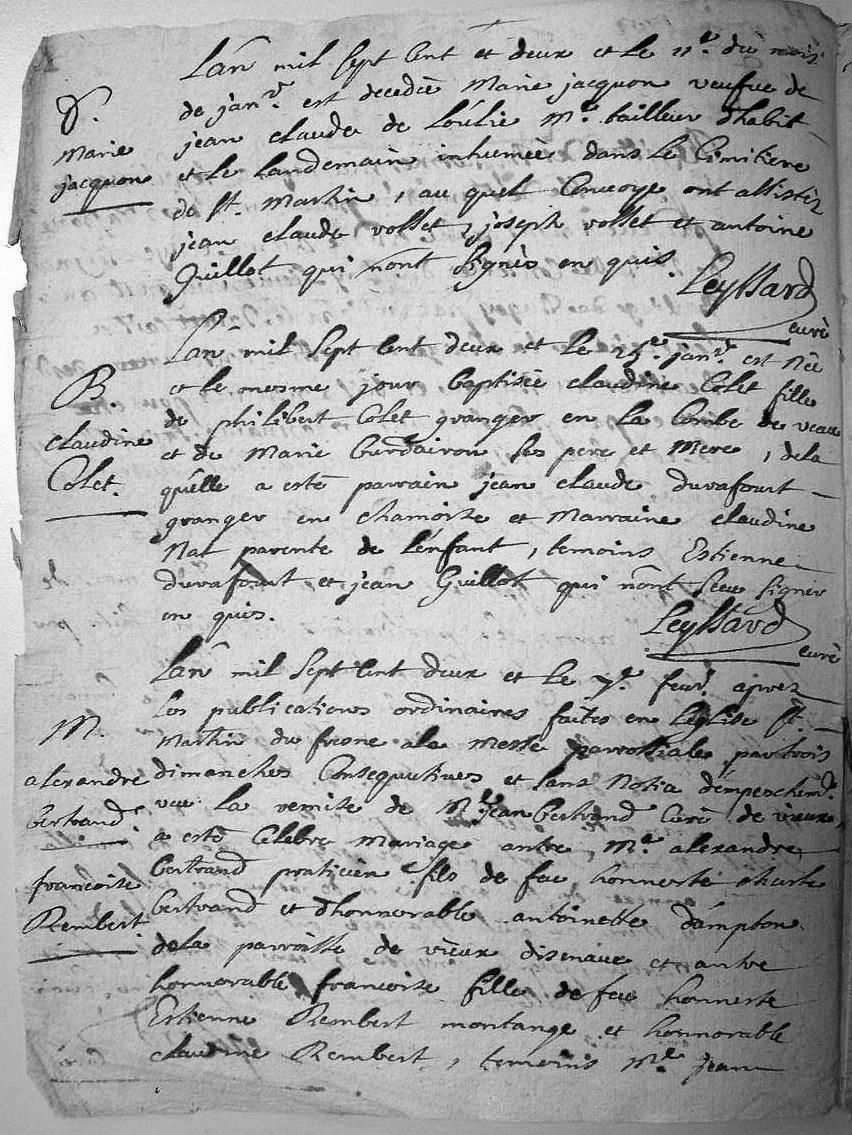 Lan mil sept cent et deux et le 11e. du mois
S.
Marie
jacquon
de janvr. est decedée Marie jacquon veufve de
jean claude de Loulie Me. tailleur dhabit
et le Landemain inhumée dans le Cimitiere
de St. Martin, au quel Convoye ont assistéz
jean claude vollet, joseph vollet et antoine
Guillot qui n'ont signés en quis.
Leyssard
curé
Lan mil sept cent deux et le 25e. janvr. est née
B.
Claudine
Colet.
et le mesme jour baptisée claudine Colet fille
de philibert Colet granger en la Combe de veaux
et de Marie ses pere et Mere, dela
quélle a esté parrain jean claude durafourt
granger en chamoise et Marraine claudine
Nat parente de Lenfant, temoins Estienne
durafourt et jean Guillot qui n'ont sceu signer
en quis.
Leyssard
curé
Lan mil sept cent deux et le 7e. fevr. aprez
M.
alexandre
bertrand
francoise
Rembert
Les publications ordinaires faites en Leglise St.
Martin du fresne a la Messe parrossiale par trois
dimanches Consequutives et sans Notia d'empeschemt.
veu la remise de Mre. jean bertrand Curé de vieux,
a esté Celebré Mariage antre, Me. alexandre
bertrand praticien fils de feu honneste charle
bertrand et d'honnorable antoinette dampton
dela parroisse de vieux disenave et antre
honnorable francoise fille de feu honneste
Estienne Rembert montange et honnorable
claudine Rembert, temoins Me. jean